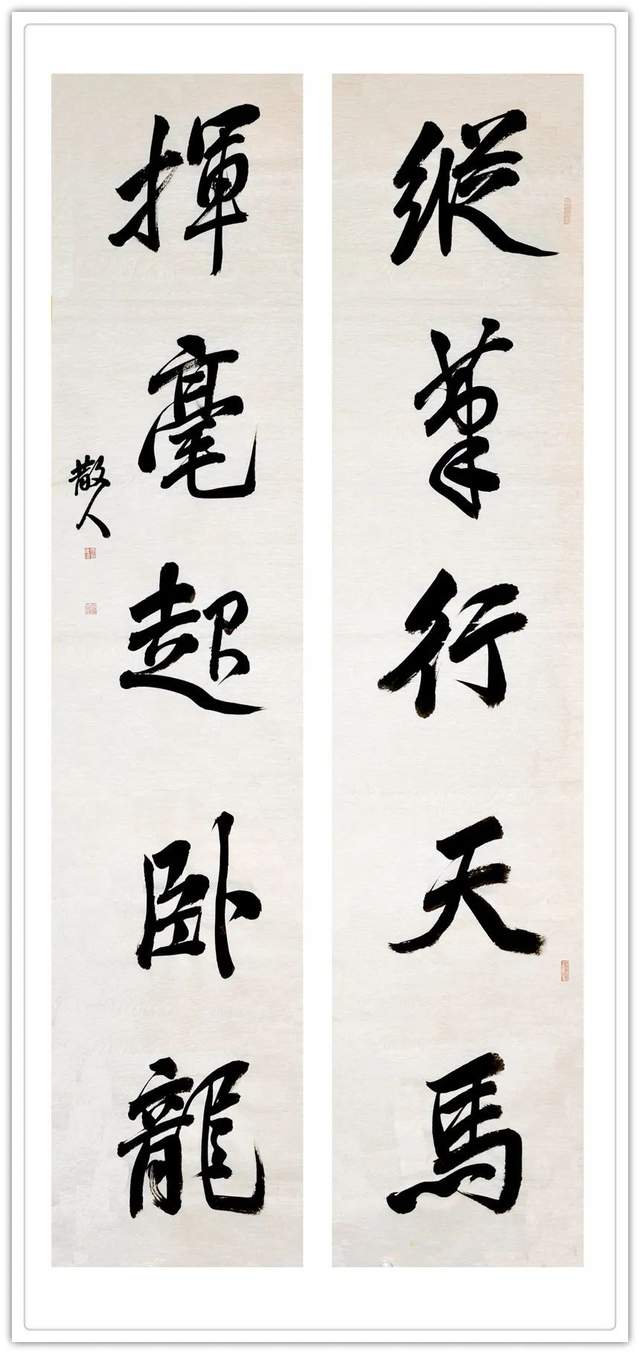 縱筆行天馬
揮毫起卧龍
散人